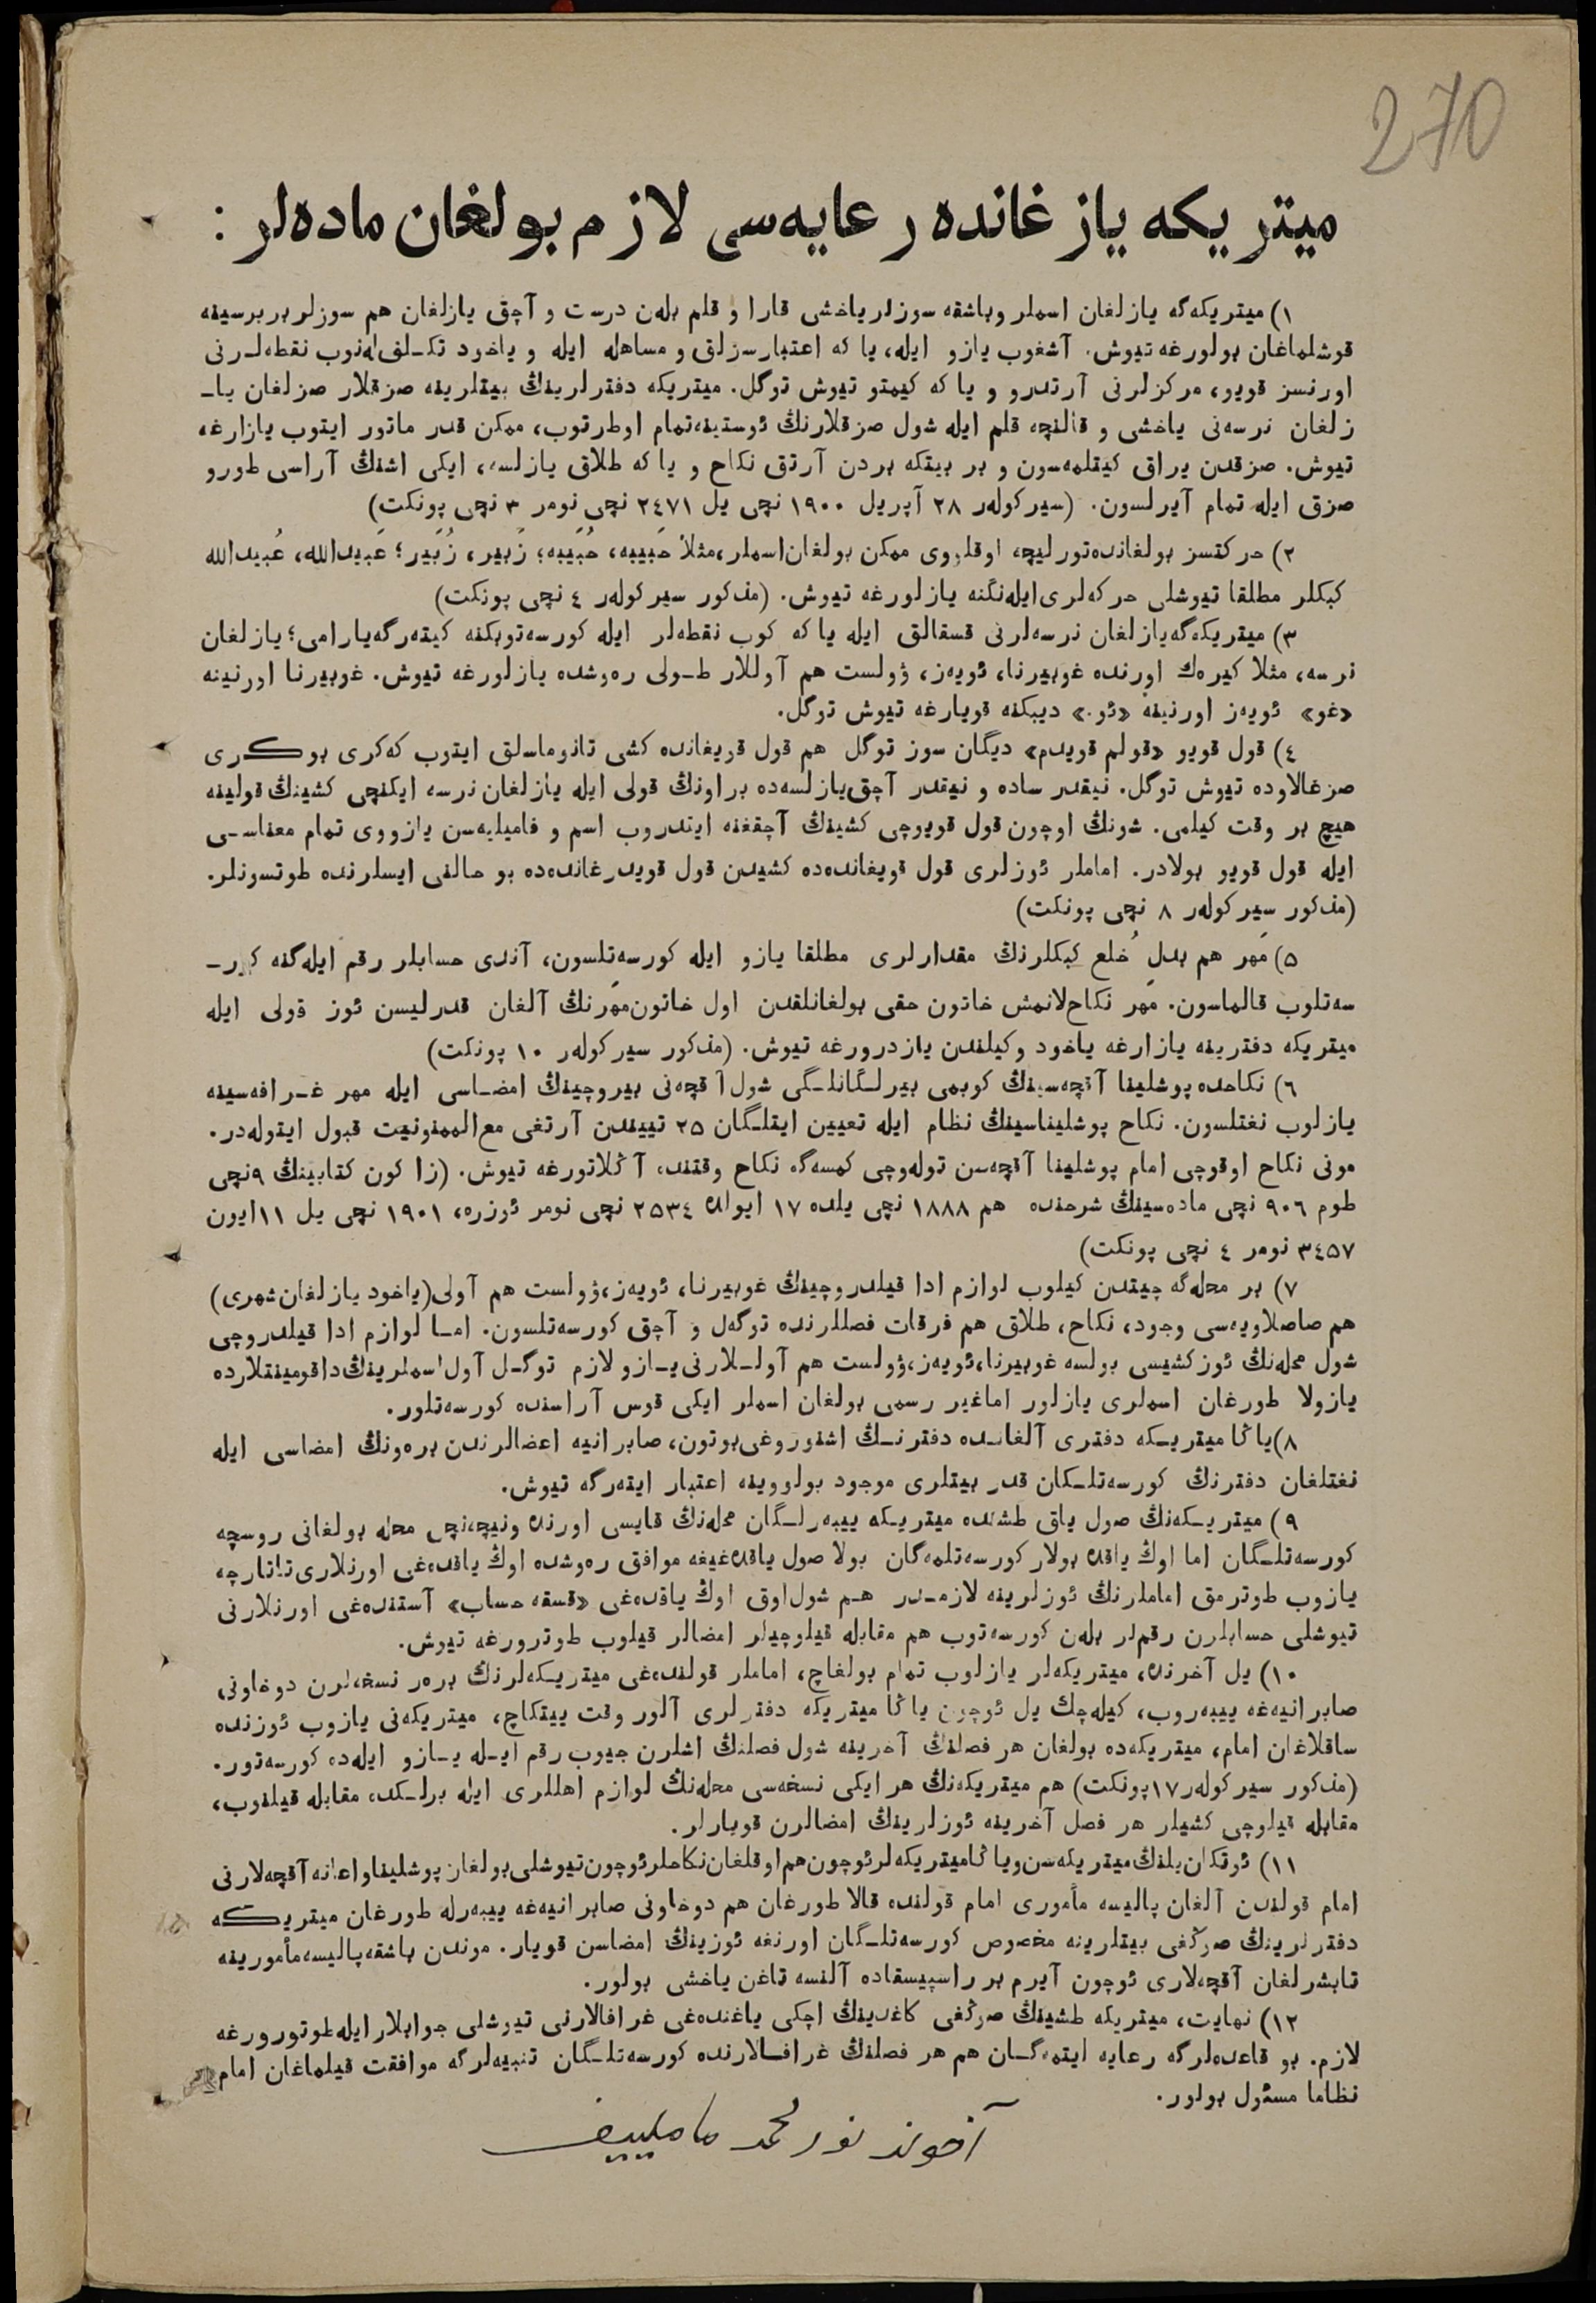 270
میتریکه یازغانده رعایه‌سی لازم بولغان ماده‌لر :
۱) میتریکه‌گه یازلغان اسملر وباشقه سوزلر یاخشی قارا و قلم بله‌ن درست و آچق یازلغان هم سوزلر بربرسینه
قوشلماغان بولورغه تیوش. آشغوب یازو ایله، یا که اعتبارسزلق و مساهله ایله و یاخود تکـلف‌له‌نوب نقطه‌لـرنی
اورنسز قویو، مرکزلرنی آرتدرو و یا که کیمتو تیوش توگل. میتریکه دفترلرینڭ بیتلرینه صزقلار صزلغان یاـ
زلغان نرسه‌نی یاخشی و قالنچه قلم ایله شول صزقلارنڭ ئوستینه‌تمام اوطرتوب، ممکن قدر ماتور ایتوب یازارغه
تیوش. صزقدن یراق کیتلمه‌سون و بر بیتکه بردن آرتق نکاح و یا که طلاق یازلسه، ایکی اشنڭ آراسی طورو
صزق ایله تمام آیرلسون. (سیرکوله‌ر ۲۸ آپریل ۱۹۰۰ نچی یل ۲٤۷۱ نچی نومر ۳ نچی پونکت)
۲) حرکتسز بولغانده‌تورلیچه اوقلووی ممکن بولغان‌اسملر،مثلاً حَبیبه، حُبَیبه؛ زَبیر، زُبَیر؛ عَبیدالله، عُبیدالله
کبکلر مطلقا تیوشلی حرکه‌لری‌ایله‌نگنه یازلورغه تیوش. (مذکور سیرکوله‌ر ٤ نچی پونکت)
۳) میتریکه‌گه‌یازلغان نرسه‌لرنی قسقالق ایله یا که کوب نقطه‌لر ایله کورسه‌توبکنه کیته‌رگه‌یارامی؛ یازلغان
نرسه، مثلا کیره‌ك اورنده غوبیرنا، ئویه‌ز، ۋولست هم آوللار طـولی ره‌وشده یازلورغه تیوش. غوبیرنا اورنینه
«غو» ئویه‌ز اورنینه «ئو.» دیبکنه قویارغه تیوش توگل.
٤) قول قویو «قولم قویدم» دیگان سوز توگل هم قول قویغانده کشی تانوماسلق ایتوب که‌کری بوکـری
صزغالاوده تیوش توگل. نیقدر ساده و نیقدر آچق‌یازلسه‌ده براونڭ قولی ایله یازلغان نرسه ایکنچی کشینڭ قولینه
هیچ بر وقت کیلمی. شونڭ اوچون قول قویوچی کشینڭ آچقغنه ایتدروب اسم و فامیلیه‌سن یازووی تمام معناسـی
ایله قول قویو بولادر. اماملر ئوزلری قول قویغانده‌ده کشیدن قول قویدرغانده‌ده بو حالنی ایسلرنده طوتسونلر.
(مذکور سیرکوله‌ر ۸ نچی پونکت)
۵) مَهر هم بدلِ خُلع کبکلرنڭ مقدارلری مطلقا یازو ایله کورسه‌تلسون، آندی حسابلر رقم ایله‌گنه کورـ
سه‌تلوب قالماسون. مَهر نکاح‌لانمش خاتون حقی بولغانلقدن اول خاتون‌مَهرنڭ آلغان قدرلیسن ئوز قولی ایله
میتریکه دفترینه یازارغه یاخود وکیلندن یازدرورغه تیوش. (مذکور سیرکوله‌ر ۱۰ پونکت)
٦) نکاحده پوشلینا آقچه‌سینڭ کوبمی بیرلـگانلـگی شول آقچه‌نی بیروچینڭ امضـاسی ایله مهر غـرافه‌سینه
یازلوب نغتلسون. نکاح پوشلیناسینڭ نظام ایله تعیین ایتلـگان ۲۵ تییندن آرتغی مع‌الممنونیت قبول ایتوله‌در.
مونی نکاح اوقوچی امام پوشلینا آقچه‌سن توله‌وچی کمسه‌گه نکاح وقتنده آڭلاتورغه تیوش. (زا کون کتابینڭ ۹نچی
طوم ۹۰٦ نچی ماده‌سینڭ شرحنده هم ۱۸۸۸ نچی یلده ۱۷ ایولده ۲۵۳٤ نچی نومر ئوزره، ۱۹۰۱ نچی یل ۱۱ایون
۳٤۵۷ نومر ٤ نچی پونکت)
۷) بر محله‌گه چیتدن کیلوب لوازم ادا قیلدروچینڭ غوبیرنا، ئویه‌ز،ۋولست هم آولی(یاخود یازلغان‌شهری)
هم صاصلاویه‌سی وجود، نکاح، طلاق هم فرقات فصللرنده توگه‌ل و آچق کورسه‌تلسون. امـا لوازم ادا قیلدروچی
شول محله‌نڭ ئوزکشیسی بولسه غوبیرنا،ئویه‌ز،ۋولست هم آولـلارنی‌یـازو لازم توگـل آول‌اسملرینڭ‌داقومینتلارده
یازولا طورغان اسملری یازلور اماغیر رسمی بولغان اسملر ایکی قوس آراسنده کورسه‌تلور.
۸)یاڭا میتریـکه دفتری آلغانـده دفترنـڭ اشنوروغی‌بوتون، صابرانیه اعضالرندن بره‌ونڭ امضاسی ایله
نغتلغان دفترنڭ کورسه‌تلـکان قدر بیتلری موجود بولووینه اعتبار ایته‌رگه تیوش.
۹) میتریـکه‌نڭ صول یاق طشنده میتریـکه ییبه‌رلـگان محله‌نڭ قایسی اورنده ونیچه‌نچی محله بولغانی روسچه
کورسه‌تلـگان اما اوڭ یاقده بولار کورسه‌تلمه‌گان بولا صول یاقده‌غیغه موافق ره‌وشده اوڭ یاقده‌غی اورنلاری‌تاتارچه
یازوب طوترمق اماملرنڭ ئوزلرینه لازمـدر هـم شول‌اوق اوڭ یاقده‌غی «قسقه حساب» آستنده‌غی اورنلارنی
تیوشلی حسابلرن رقم‌لر بله‌ن کورسه‌توب هم مقابله قیلوچیلر امضالر قیلوب طوترورغه تیوش.
۱۰) یل آخرنده، میتریکه‌لر یازلوب تمام بولغاچ، اماملر قولنده‌غی میتریـکه‌لرنڭ بره‌ر نسخه‌لرن دوخاونی
صابرانیه‌غه ییبه‌روب، کیله‌چك یل ئوچون یاڭا میتریکه دفترلری آلور وقت ییتکاچ، میتریکه‌نی یازوب ئوزنده
ساقلاغان امام، میتریکه‌ده بولغان هر فصلنڭ آخرینه شول فصلنڭ اشلرن جیوب رقم ایـله یـازو ایله‌ده کورسه‌تور.
(مذکور سیرکوله‌ر ۱۷پونکت) هم میتریکه‌نڭ هر ایکی نسخه‌سی محله‌نڭ لوازم اهللری ایله برلـکده مقابله قیلنوب،
مقابله قیلوچی کشیلر هر فصل آخرینه ئوزلرینڭ امضالرن قویارلر.
۱۱) ئوتکان‌یلنڭ‌میتریکه‌سن‌ویاڭامیتریکه‌لرئوچون‌هم‌اوقلغان‌نکاحلرئوچون‌تیوشلی‌بولغان‌پوشلیناواعانه‌آقچه‌لارنی
امام قولندن آلغان پالیسه مأموری امام قولنده قالا طورغان هم دوخاونی صابرانیه‌غه ییبه‌رله طورغان میتریـکه
دفترلرینڭ صوڭغی بیتلرینه مخصوص کورسه‌تلـگان اورنغه ئوزینڭ امضاسن قویار. موندن باشقه‌پالیسه‌مأمورینه
تابشرلغان آقچه‌لاری ئوچون آیرم بر راسپیسقاده آلنسه تاغن یاخشی بولور.
۱۲) نهایت، میتریکه طشینڭ صوڭغی کاغدینڭ اچکی یاغنده‌غی غرافالارنی تیوشلی جوابلار ایله‌طوتورورغه
لازم. بو قاعده‌لرگه رعایه ایتمه‌گـان هم هر فصلنڭ غرافـالارنده کورسه‌تلـگان تنبیه‌لرگه موافقت قیلماغان امام
نظاما مسئول بولور.
آخوند نورمحمد ماملییف